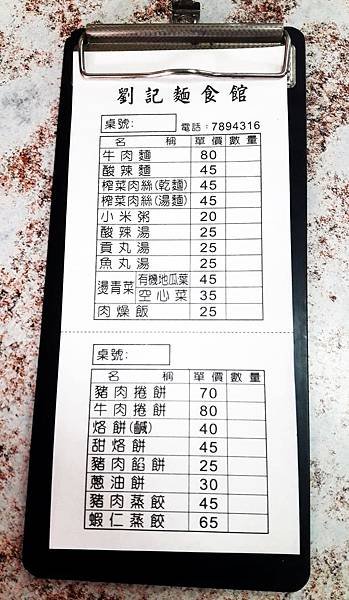 劉記麵食館
桌號: 電話:7894316
名稱 單價 數量
牛肉麵 80
酸辣麵 45
榨菜肉絲(乾麵) 45
榨菜肉絲(湯麵) 45
小米粥 20
酸辣湯 25
貢丸湯 25
魚丸湯 25
燙青菜 有機地瓜葉 45
空心菜 35
肉燥飯 25
桌號:
名稱 單價 數量
豬肉捲餅 70
牛肉捲餅 80
烙餅(鹹) 40
甜烙餅 45
豬肉餡餅 25
蔥油餅 30
豬肉蒸餃 45
蝦仁蒸餃 65